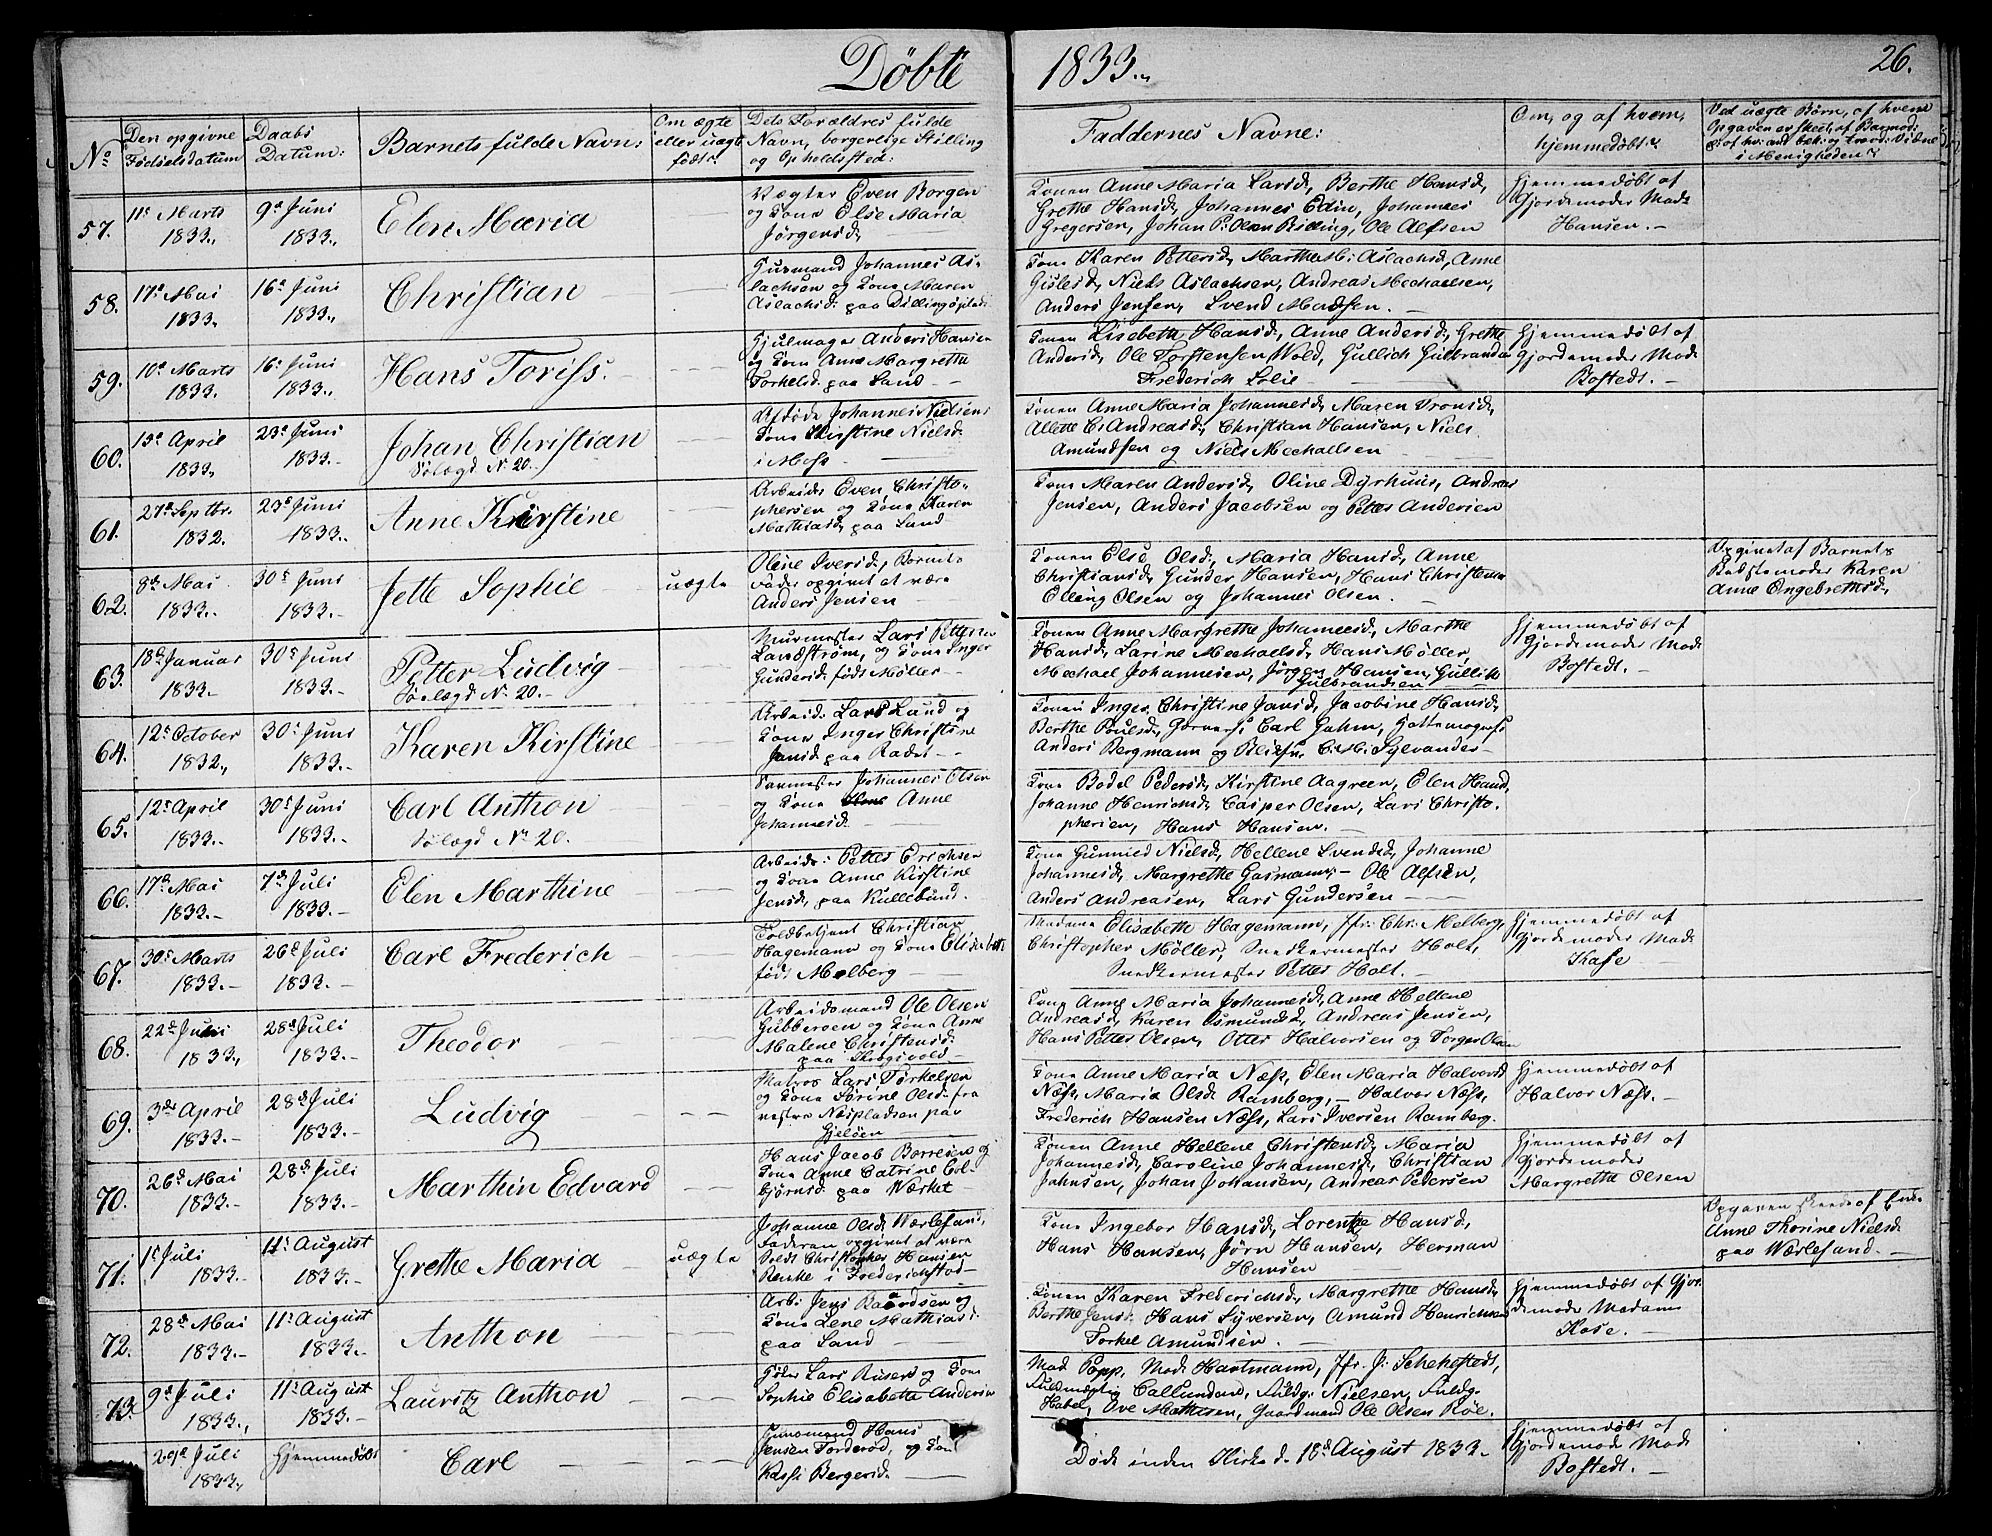 Döbte 1833.
26.
No
Den opgivne Födselsdatum
Daabs Datum:
Barnets fulde Navn:
Om ægte eller uægte født:
Dets Forældres fulde Navn, borgerlige Stilling og Opholdssted:
Faddernes Navne:
Om, og af hvem, hjemmedöbt:
57. 11 Marts 1833. 9 Juni 1833. Elen Maria
Vægter Even Borgen
og Kone Else Maria
Jörgensd.
Konen Anne Maria Larsd., Berthe Hansd.,
Grethe Hansd., Johannes Edin, Johannes
Gregersen, Johan P. Olsen Biding, Ole Alfsen
Hjemmedöbt af
Gjordemoder Mad.
Hansen.
58. 17 Mai 1833. 16 Juni 1833. Christian
Huusmand Johannes As-
lachsen og Kone Maren
Aslachsd. paa Dillingöplads
Kone Karen Pettersd., Marthe M. Aslachsd., Anne
Gislesd., Niels Aslachsen, Andreas Mechaelsen,
Anders Jensen, Svend Madsen.
59. 10 Marts 1833. 16 Juni 1833. Hans Toriss.
Hjulmager Anders Hansen
og Kone Anne Margrethe
Torkelsd. paa Land
Konen Lisebeth Hansd., Anne Andersd., Grethe
Andersd., Ole Torstensen Wold, Gullich Gulbrandsen
Frederich Lolie
Hjemmedöbt af
Gjordemoder Mad.
Bostedt.
60. 13 April 1833. 23 Juni 1833. Johan Christian
Sölægd No 20.
Afdöde Johannes Nielsens
Kone Kirstine Nielsd.
i Moss
Konen Anne Maria Johannesd., Maren Tronsd.,
Allette C. Andreasd., Christian Hansen, Niels
Amundsen og Niels Mechaelsen
61. 27 Septbr. 1832. 23 Juni 1833. Anne Kirstine
Arbeider Even Christo-
phersen og Kone Karen
Mathiasd. paa Land
Kone Maren Andersd., Oline Dyrhuus, Andreas
Jensen, Anders Jacobsen og Petter Andersen
62. 8 Mai 1833. 30 Juni 1833. Jette Sophie uægte
Oline Iversd., Barnets
Fader opgivet at være
Anders Jensen
Konen Else Olsd., Maria Hansd., Anne
Christiansd., Gunder Hansen, Hans Christensen
Elling Olsen og Johannes Olsen.
Opgivet af Barnets
Bedstemoder Karen
Anne Engebrethsd.
63. 18 Januar 1833. 30 Juni 1833. Petter Ludvig
Sölægd No 20.
Murmester Lars Petterse
Landström, og Kone Inger
Gundersd. født Møller
Konen Anne Margrethe Johannesd., Marthe
Hansd., Larine Mechaelsd., Hans Møller
Mechael Johannesen, Jörgen Hansen, Gullik
Gulbrandsen
Hjemmedöbt af
Gjordemoder Mad.
Bostedt.
64. 12 October 1832. 30 Juni 1833. Karen Kirstine
Arbeid. Lars Lund og
Kone Inger Christine
Jansd. paa Rødet
Konen Inger Christine Jansd., Jacobine Hansd.,
Berthe Poulsd., Garvers. Carl Gahrn, Hattemagers.
Anders Bergmann og Bliksv. C. M. Sylvander
65. 12 April 1833. 30 Juni 1833. Carl Anthon
Sölægd No 20.
Johannes Olsen
og Kone Anne
Johannesd.
Kone Bodel Pedersd., Kirstine Aagreen, Elen Hansd.,
Johanne Henrichsd., Casper Olsen, Lars Christo-
phersen, Hans Hansen.
66. 17 Mai 1833. 7 Juli 1833. Elen Marthine
Arbeids: Petter Erichsen
og Kone Anne Kirstine
Jensd., paa Kullebund.
Kone Gunnied Nielsd., Hellene Svendsd., Johanne
Johannesd., Margrethe Gasmann, Ole Alfsen,
Anders Andreasen, Lars Gundersen
67. 30 Marts 1833. 26 Juli 1833. Carl Frederich
Toldbetjent Christian
Hagemann og Kone Elisabeth
født Melberg
Madame Elisabeth Hagemann, Jfr. Chr. Melberg,
Christopher Möller, Snedkermester Holt,
Snedkermester Petter Holt.
Hjemmedöbt af
Gjordemoder Mad.
Kase
68. 22 Juni 1833. 28 Juli 1833. Theodor
Arbeidsmand Ole Olsen
Gubberoen og Kone Anne
Malene Christensd.
paa Krogsvold
Kone Anne Maria Johannesd., Anne Hellene
Andreasd., Karen Osmundsd., Andreas Jensen,
Hans Petter Olsen, Otter Halvorsen og Torger Olsen
69. 3 April 1833. 28 Juli 1833. Ludvig
Matros Lars Torkelsen
og Kone Sörine Olsd. fra
vestre Næspladsen paa
Gjelöen
Kone Anne Maria Næss, Elen Maria Halvorsd.
Næss, Maria Olsd. Ramberg, Halvor Næss,
Frederich Hansen Næss, Lars Iversen Ramberg.
Hjemmedöbt af
Halvor Næss.
70. 26 Mai 1833. 28 Juli 1833. Marthin Edvard
Hans Jacob Borresen og
Kone Anne Catrine Col-
björnsd. paa Værket
Konen Anne Hellene Christensd., Maria
Johannesd., Caroline Johannesd., Christian
Johnsen, Johan Johansen, Andreas Pedersen
Hjemmedöbt af
Gjordemoder
Margrethe Olsen
71. 1 Juli 1833. 11 August 1833. Grethe Maria uægte
Johanne Olsd. Værlesand,
Faderen opgivet at være
Christopher Hansen
i Frederichstad
Kone Ingebor Hansd., Lorentze Hansd.,
Hans Hansen, Jörn Hansen, Herman
Hansen
Opgaven skeede af Enke
Anne Thorine Nielsd.
paa Værlesand.
72. 28 Mai 1833. 11 August 1833. Anthon
Arb: Jens Baardsen og
Kone Lene Mathiasd.
paa Land
Konen Karen Frederichsd., Margrethe Hansd.,
Berthe Jensd. Hans Syversen, Amund Henrichsen
Torkel Amundsen.
Hjemmedöbt af Gjor-
demoder Madam
Kose.
73. 9 Juli 1833. 11 August 1833. Lauritz Anthon
Lars Russen og Kone
Sophie Elisabeta Andersen
Mad. Popp, Mad. Hartmann, Jfr. J. Schehestedt,
Fuldmægtig Callundand, Fuldm. Nielsen, Fuldm.
Habel, Ove Mathisen, Gaardmand Ole Olsen Röe.
29 Juli 1833. Hjemmedöbt Carl
Huusmand Hans
Jensen Torderöd, og Kone
Kasse Bergersd.
Døde inden Kirked. 18 August 1833.
Hjemmedöbt af
Gjordemode Mad.
Bostedt.